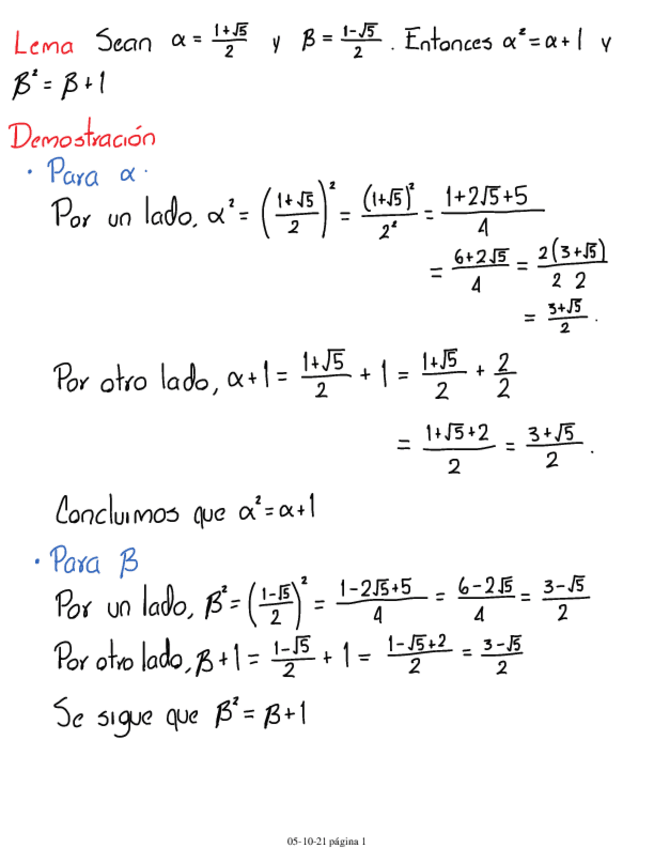 Lema Sean α = (1+√5)/2 y β = (1-√5)/2 . Entonces α² = α+1 y
β² = β+1
Demostración
· Para α.
Por un lado, α² = ((1+√5)/2)² = (1+√5)²/2² = (1+2√5+5)/4
= (6+2√5)/4 = 2(3+√5)/(2 2)
= (3+√5)/2 .
Por otro lado, α+1 = (1+√5)/2 + 1 = (1+√5)/2 + 2/2
= (1+√5+2)/2 = (3+√5)/2 .
Concluimos que α² = α+1
· Para β
Por un lado, β² = ((1-√5)/2)² = (1-2√5+5)/4 = (6-2√5)/4 = (3-√5)/2
Por otro lado, β+1 = (1-√5)/2 + 1 = (1-√5+2)/2 = (3-√5)/2
Se sigue que β² = β+1
05-10-21 página 1